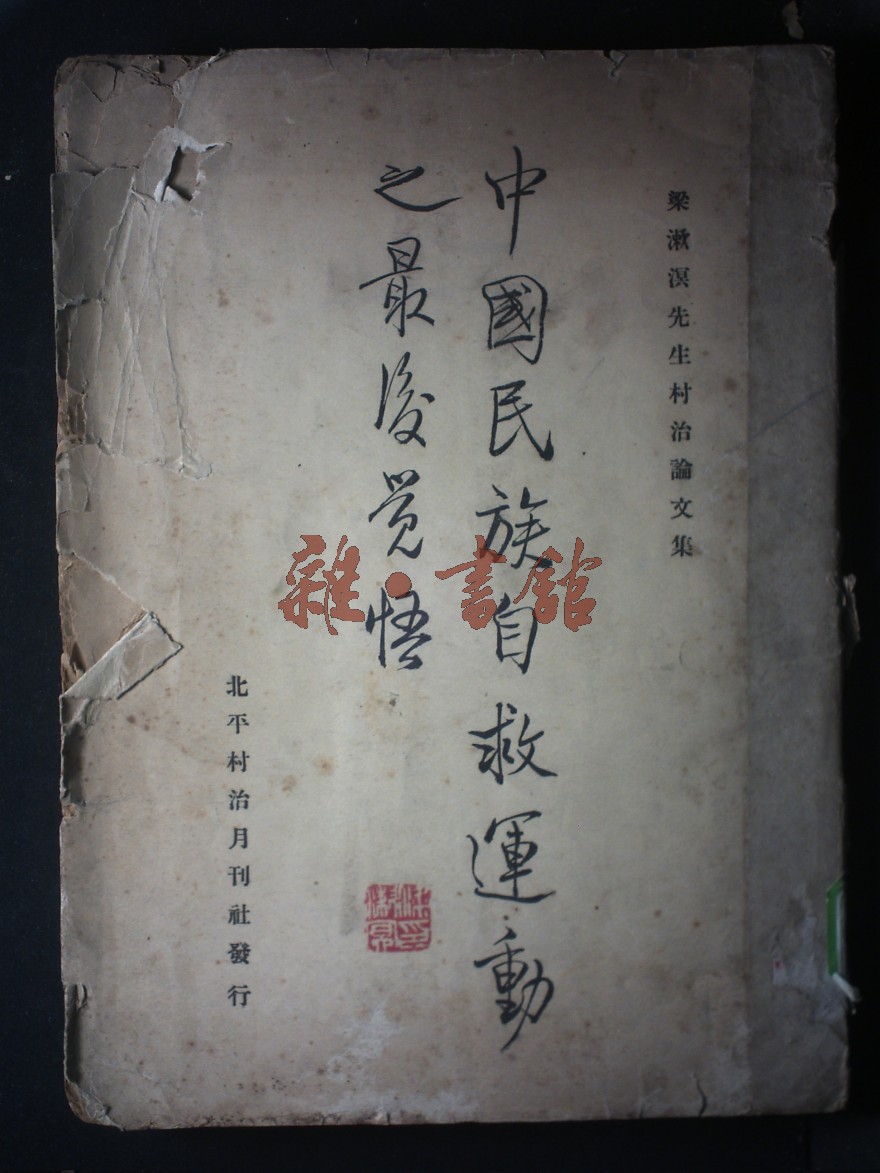 梁漱溟先生村治論文集
中國民族自救運動
之最後觉悟
北平村治月刊社發行
雜·書館